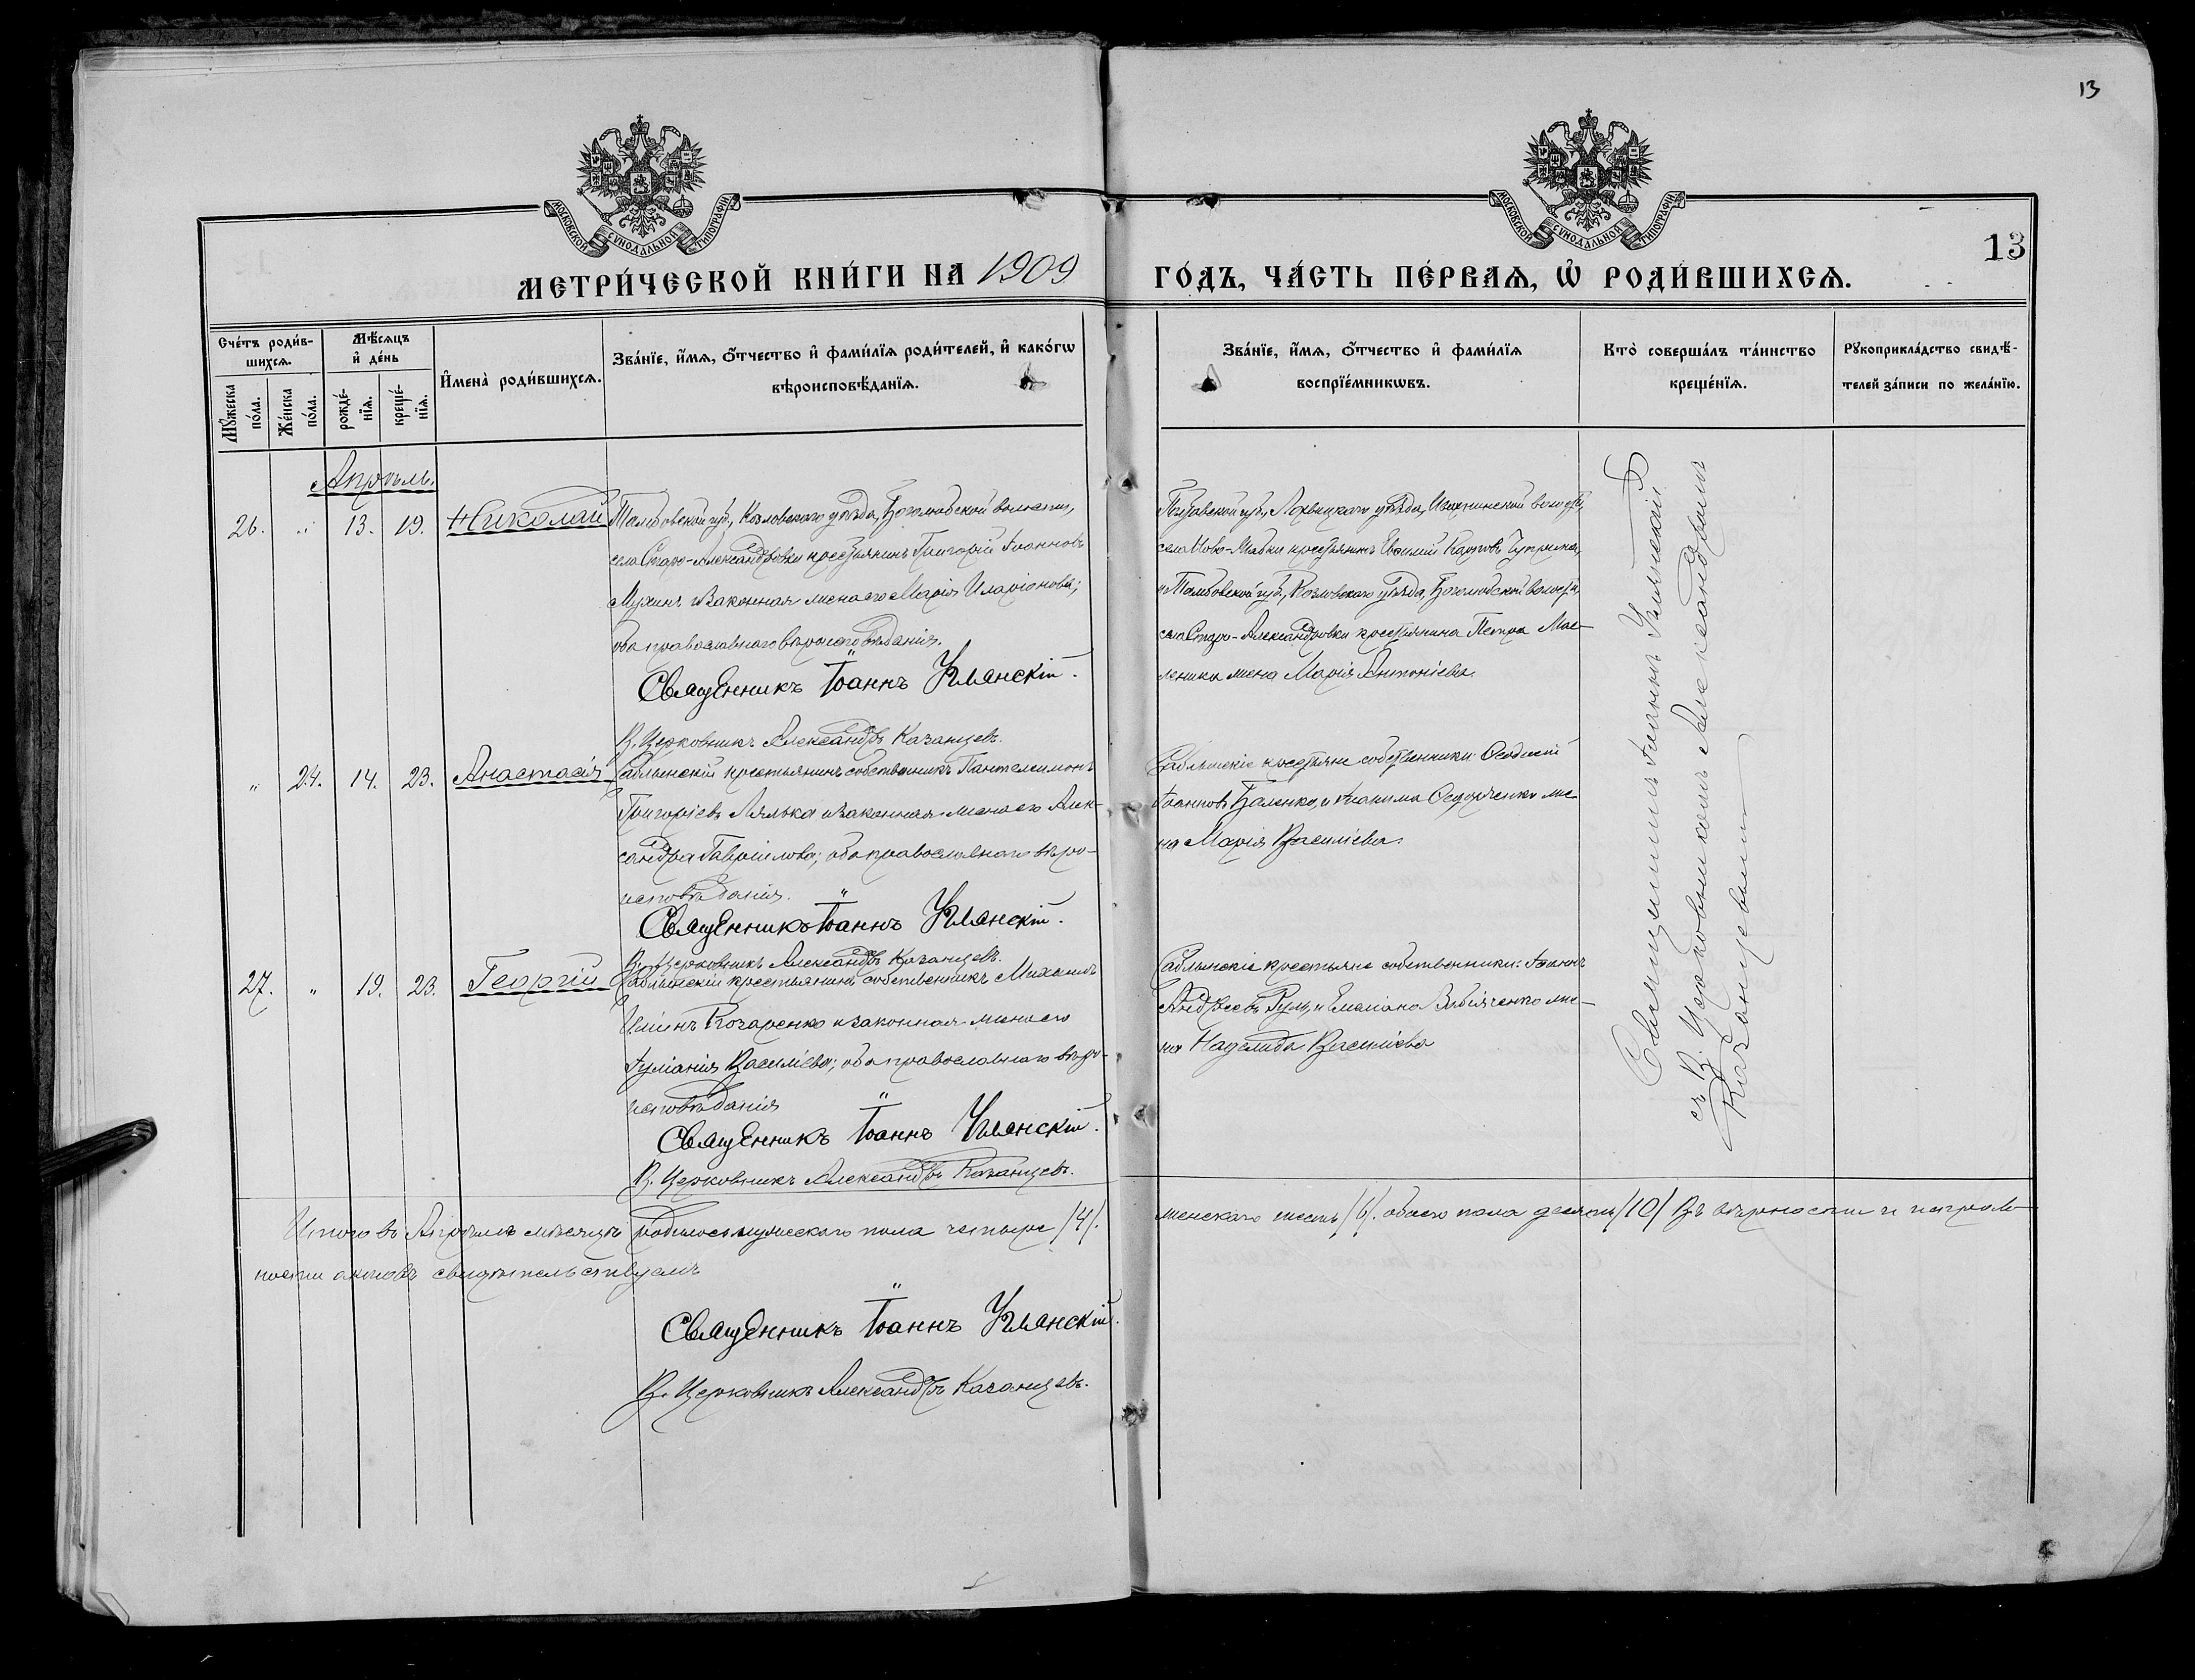 13
МОСКОВСКОЙ СѴНОДАЛЬНОЙ ТИПОГРАФІИ
МОСКОВСКОЙ СѴНОДАЛЬНОЙ ТИПОГРАФІИ
13
МЕТРИ́ЧЕСКОЙ КНИ́ГИ НА 1909 ГО́ДЪ, ЧА́СТЬ ПЕ́РВАѦ, Ѡ҆ РОДИ́ВШИХСѦ.
Сче́тъ роди́в-
шихсѧ.
Мꙋ́жеска по́ла.
Же́нска по́ла.
Мѣ́сѧцъ и҆ де́нь
рожде́-нїѧ.
креще́-нїѧ.
И҆мена̀ роди́вшихсѧ.
Зва́нїе, и҆́мѧ, ѻ҆́тчество и҆ фами́лїѧ роди́телей, и҆ како́гѡ
вѣроисповѣ́данїѧ.
Зва́нїе, и҆́мѧ, ѻ҆́тчество и҆ фами́лїѧ
воспрїе́мникѡвъ.
Кто̀ соверша́лъ та́инство
креще́нїѧ.
Рꙋкоприкла́дство свидѣ́-
телей за́писи по жела́нїю.
Апрѣль.
26. „ 13. 19. Николай
Тамбовской губ., Козловскаго уѣзда, Боголюбской волости,
села Старо-Александровки крестьянинъ Григорій Іоанновъ
Мухинъ и законная жена его Марія Иларіонова;
оба православнаго вѣроисповѣданія.
Священникъ Іоаннъ Углянскій.
В. Церковникъ Александръ Казанцевъ.
Полтавской губ., Лохвицкаго уѣзда, волости,
села крестьянинъ Карповъ
и Тамбовской губ., Козловскаго уѣзда, Боголюбской волости,
села Старо-Александровки крестьянина Петра Мас-
леника жена Марія Антоніева.
„ 24. 14. 23. Анастасія
Саблынскій крестьянинъ собственникъ Пантелеимонъ
Григоріевъ Лялька и законная жена его Алек-
сандра Гавріилова; оба православнаго вѣро-
исповѣданія.
Священникъ Іоаннъ Углянскій.
В. Церковникъ Александръ Казанцевъ.
Саблынскіе крестьяне собственники: Ѳеодосій
Іоанновъ Баленко, и Іоакима Ѳедорченко же-
на Марія Василіева.
27. „ 19. 23. Георгій
Саблынскій крестьянинъ собственникъ Михаилъ
Иліинъ Кочаренко и законная жена его
Іуліанія Василіева; оба православнаго вѣро-
исповѣданія
Священникъ Іоаннъ Углянскій.
В. Церковникъ Александръ Казанцевъ.
Саблынскіе крестьяне собственники: Іоаннъ
Андреевъ и Емеліана же-
на Надежда Василіева
Священникъ Іоаннъ Углянскій
съ В. Церковникомъ Александромъ
Казанцевымъ
Итого въ Апрѣлѣ мѣсяцѣ родилось мужескаго пола четыре /4/. женскаго шесть /6/. обоего пола десять /10/ Въ вѣрности и исправ-
ности актовъ свидѣтельствуемъ
Священникъ Іоаннъ Углянскій.
В. Церковникъ Александръ Казанцевъ.